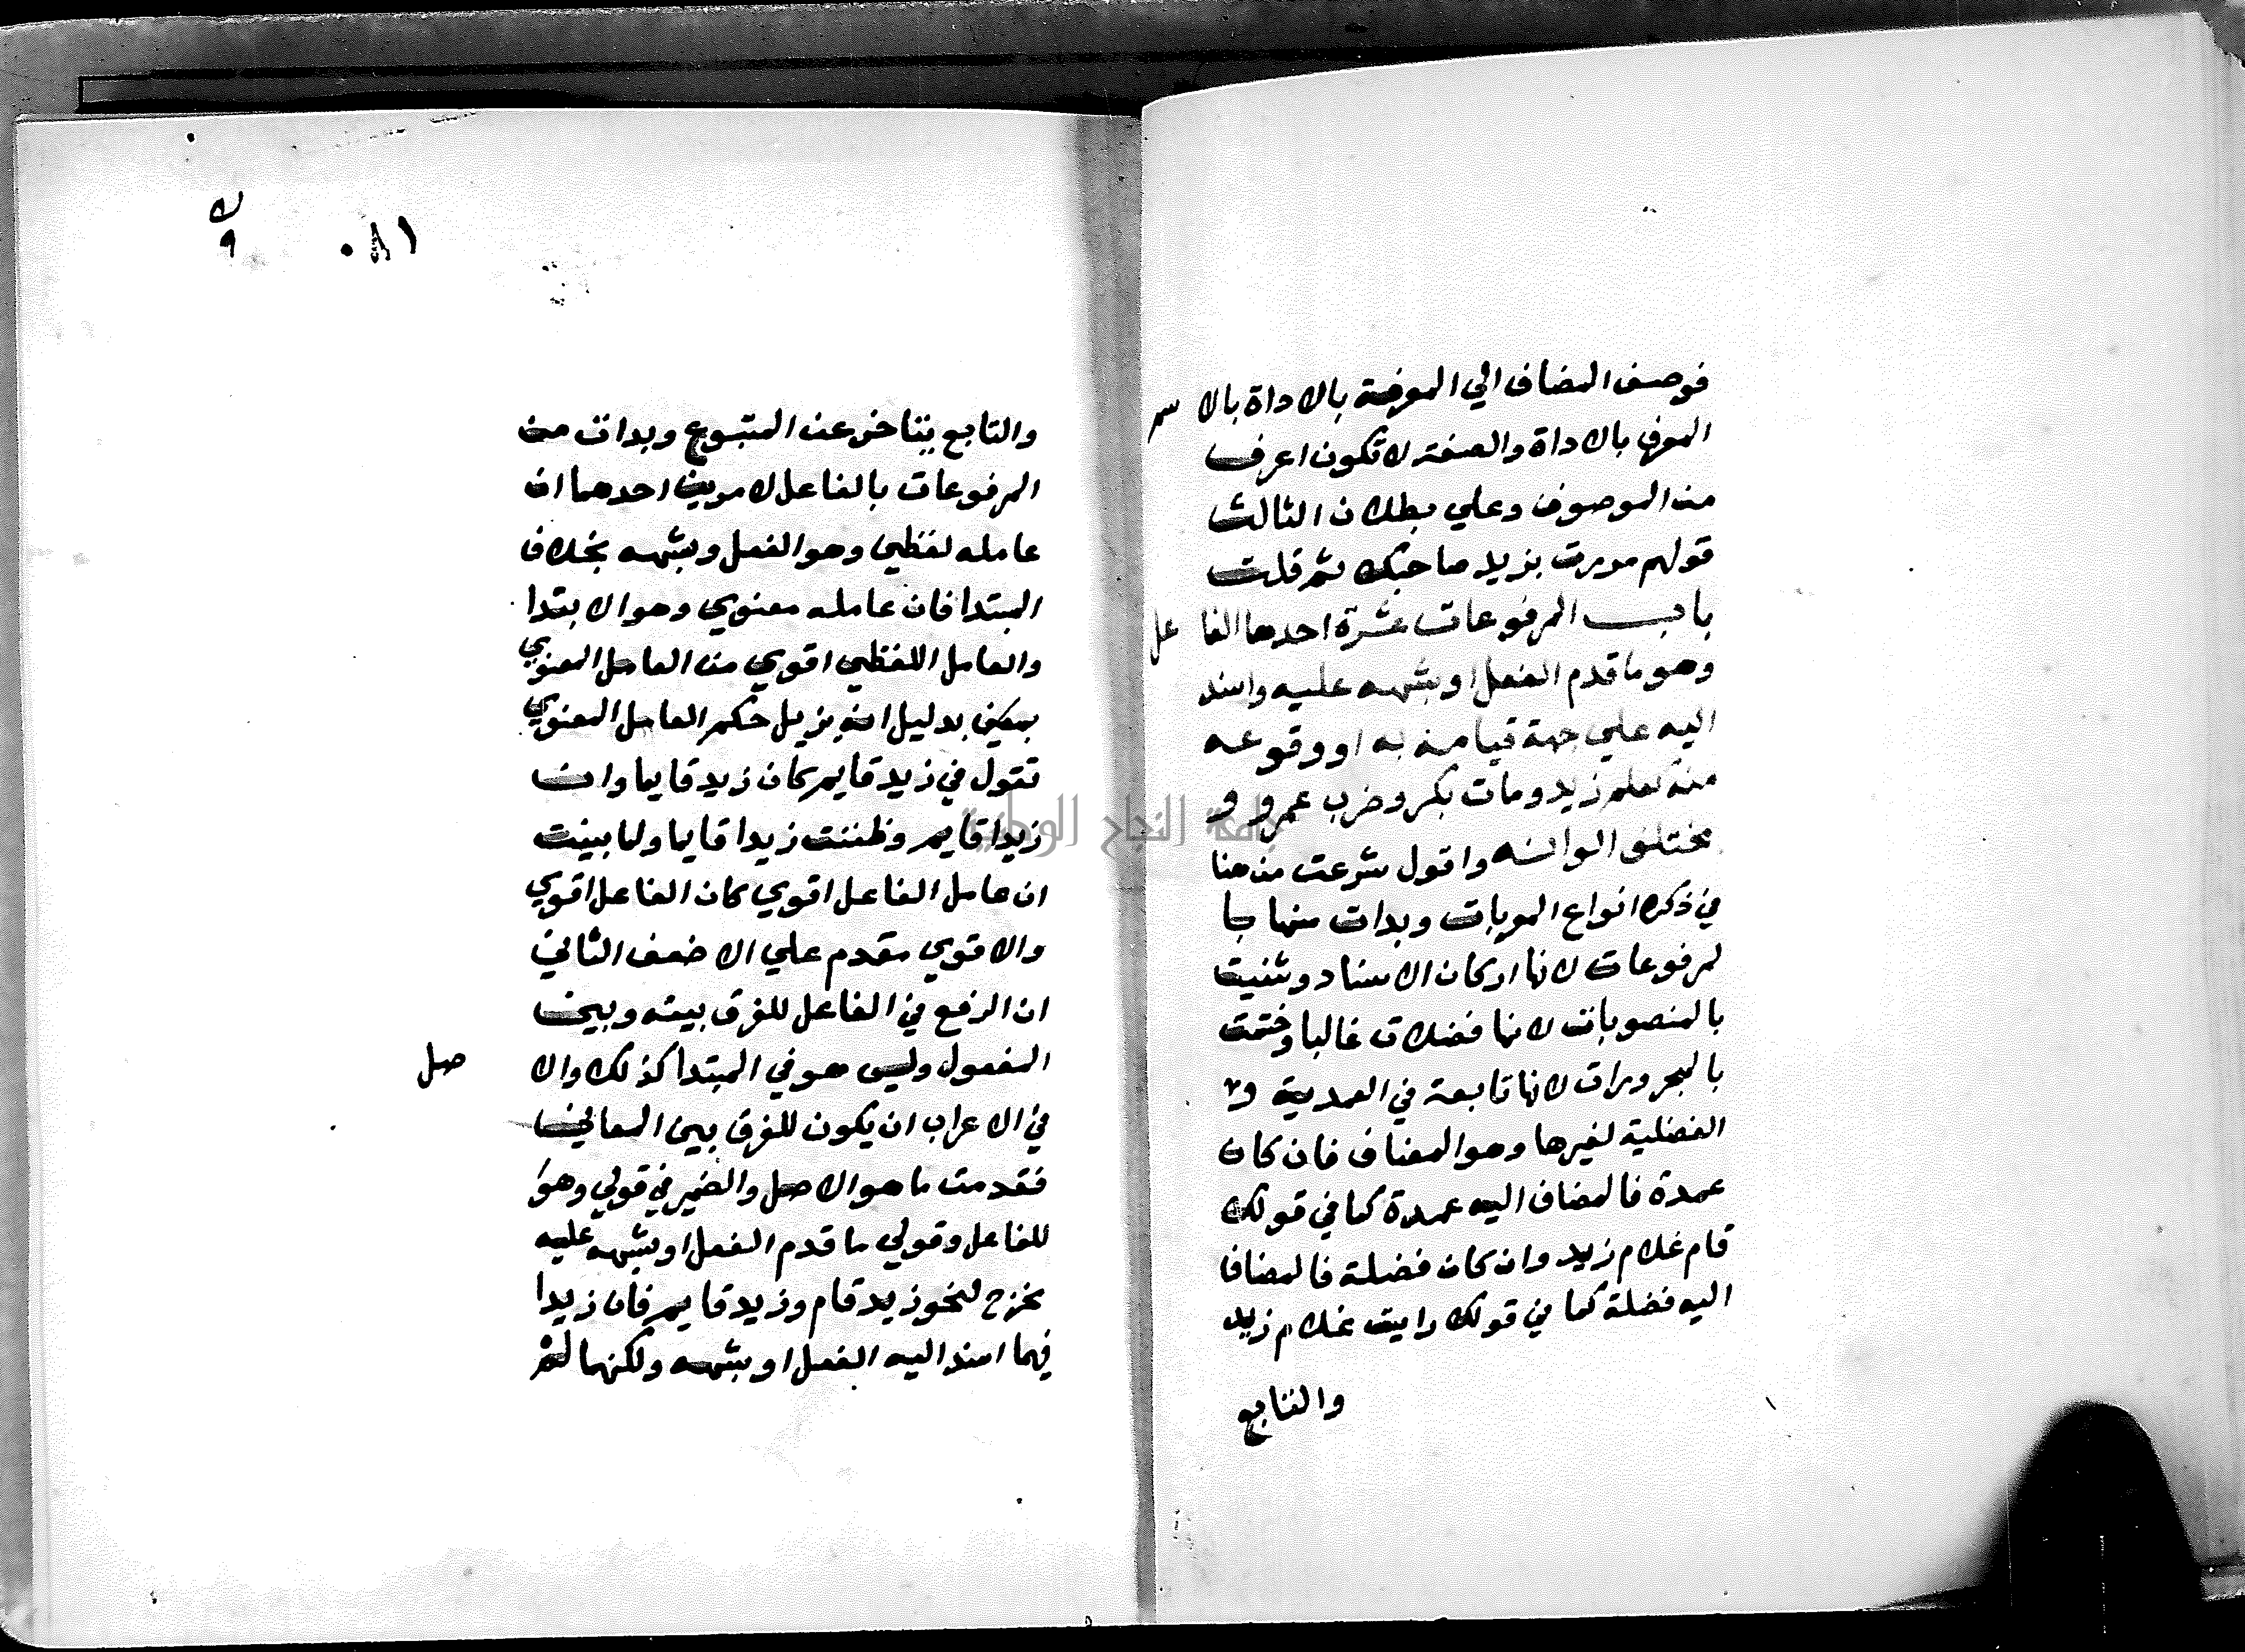 فوصف المضاف الي المعرفة بالاداة بالاسم
المعرف بالاداة والصفة لا تكون اعرف
من الموصوف وعلي بطلان الثالث
قولهم مررت بزيد صاحبك ثم قلت
باب المرفوعات عشرة احدها الفاعل
وهو ما قدم الفعل او شبهه عليه واسند
اليه علي جهة قيامه به او وقوعه
منه كعلم زيد ومات بكر وضرب عمرو و
مختلف الوانه واقول شرعت من هنا
في ذكر انواع المعربات وبدات منها با
لمرفوعات لانها اركان الاسناد وثنيت
بالمنصوبات لانها فضلات غالبا وختمت
بالمجرورات لانها تابعة في العمدية و
الفضلية لغيرها وهو المضاف فان كان
عمدة فالمضاف اليه عمدة كما في قولك
قام غلام زيد وان كان فضلة فالمضاف
اليه فضلة كما في قولك رايت غلام زيد
والتابع
١٨٠
والتابع يتاخر عن المتبوع وبدات من
المرفوعات بالفاعل لامرين احدهما ان
عامله لفظي وهو الفعل وشبهه بخلاف
المبتدا فان عامله معنوي وهو الابتدا
والعامل اللفظي اقوي من العامل المعنوي
بدليل انه يزيل حكم العامل المعنوي
تقول في زيد قايم كان زيد قايما وان
زيدا قايم وظننت زيدا قايما ولما بينت
ان عامل الفاعل اقوي كان الفاعل اقوي
والاقوي مقدم علي الاضعف الثاني
ان الرفع في الفاعل للفرق بينه وبين
المفعول وليس هو في المبتدا كذلك والاصل
في الاعراب ان يكون للفرق بين المعاني
فقدمت ما هو الاصل والضمير في قولي وهو
للفاعل وقولي ما قدم الفعل او شبهه عليه
مخرج لنحو زيد قام وزيد قايم فان زيدا
فيهما اسند اليه الفعل او شبهه ولكنهما لم
جامعة النجاح الوطنية